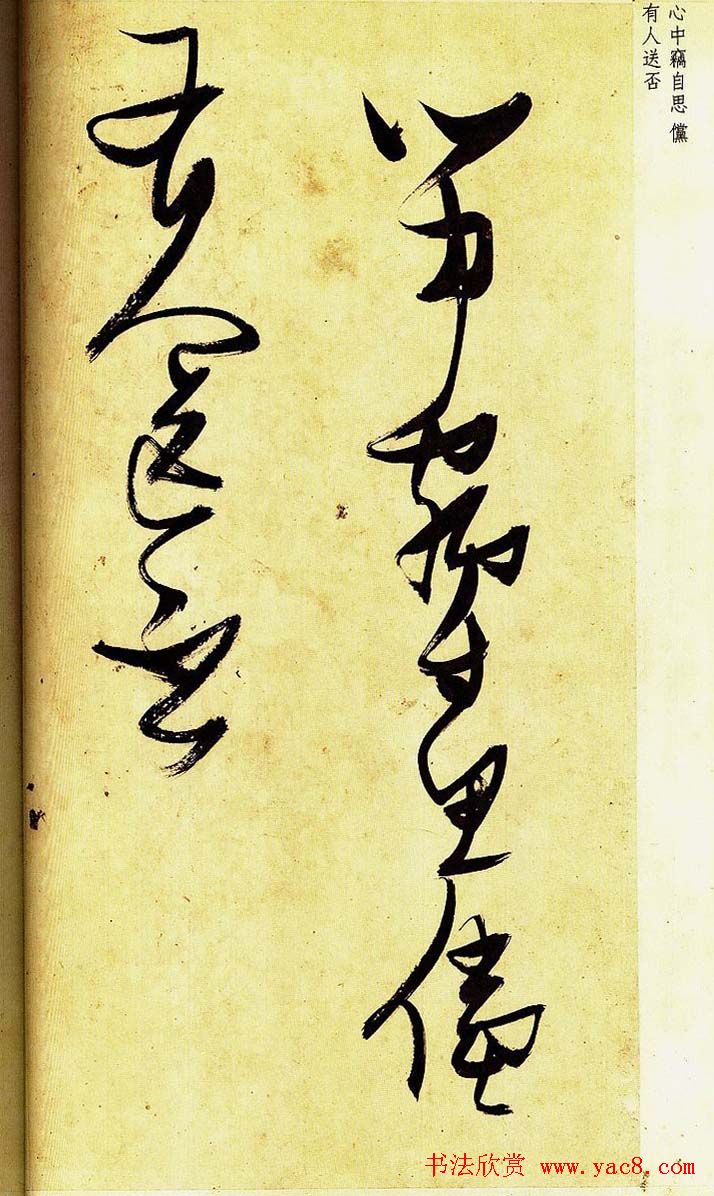 心中竊自思儻
有人送否
心中竊自思 儻
有人送否
书法欣赏 www.yac8.com